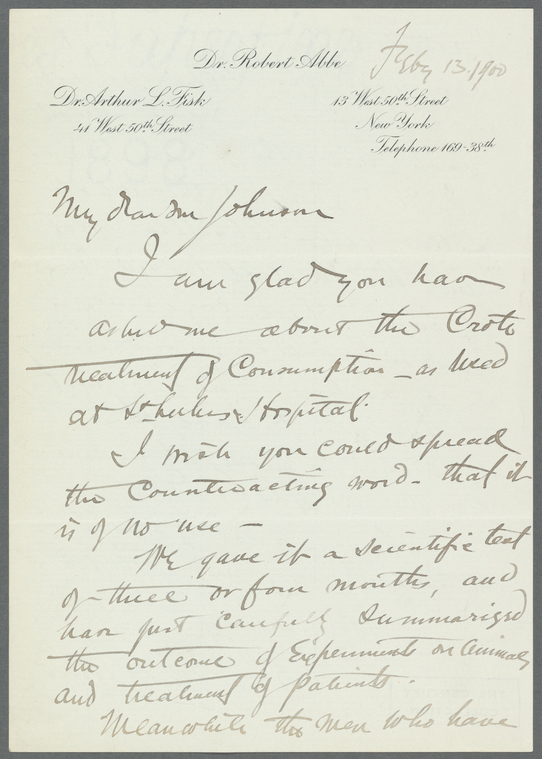 Dr. Robert Abbe
Feby 13. 1900
Dr. Arthur L. Fisk
41 West 50th Street
13 West 50th Street
New York
Telephone 169-38th
My dear Mr Johnson
I am glad you have
asked me about the Crotte
treatment of Consumption - as used
at St Lukes Hospital.
I wish you could spread
the counteracting word - that it
is of no use -
We gave it a scientific test
of three or four months, and
have just carefully summarized
the outcome of Experiments on animals
and treatment of patients.
Meanwhile the men who have